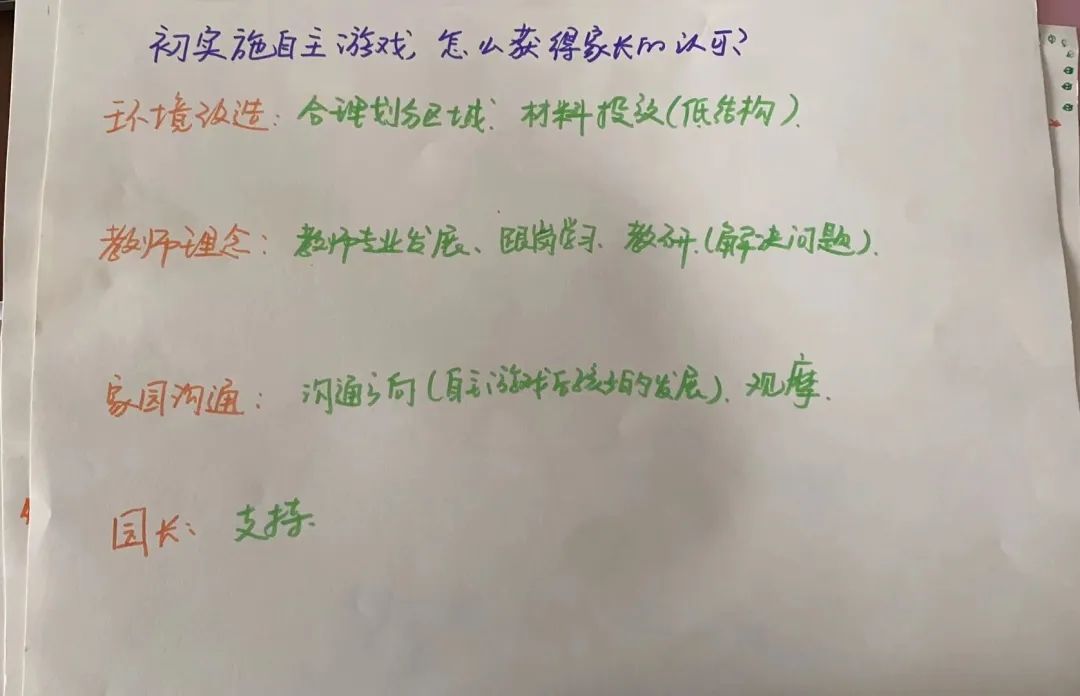 初实施自主游戏,怎么获得家长的认可?
环境改造:合理划分区域、材料投放(低结构).
教师理念:教师专业发展、跟岗学习、教研.(解决问题).
家园沟通:沟通方向(自主游戏后孩子的发展)、观摩.
园长:支持.